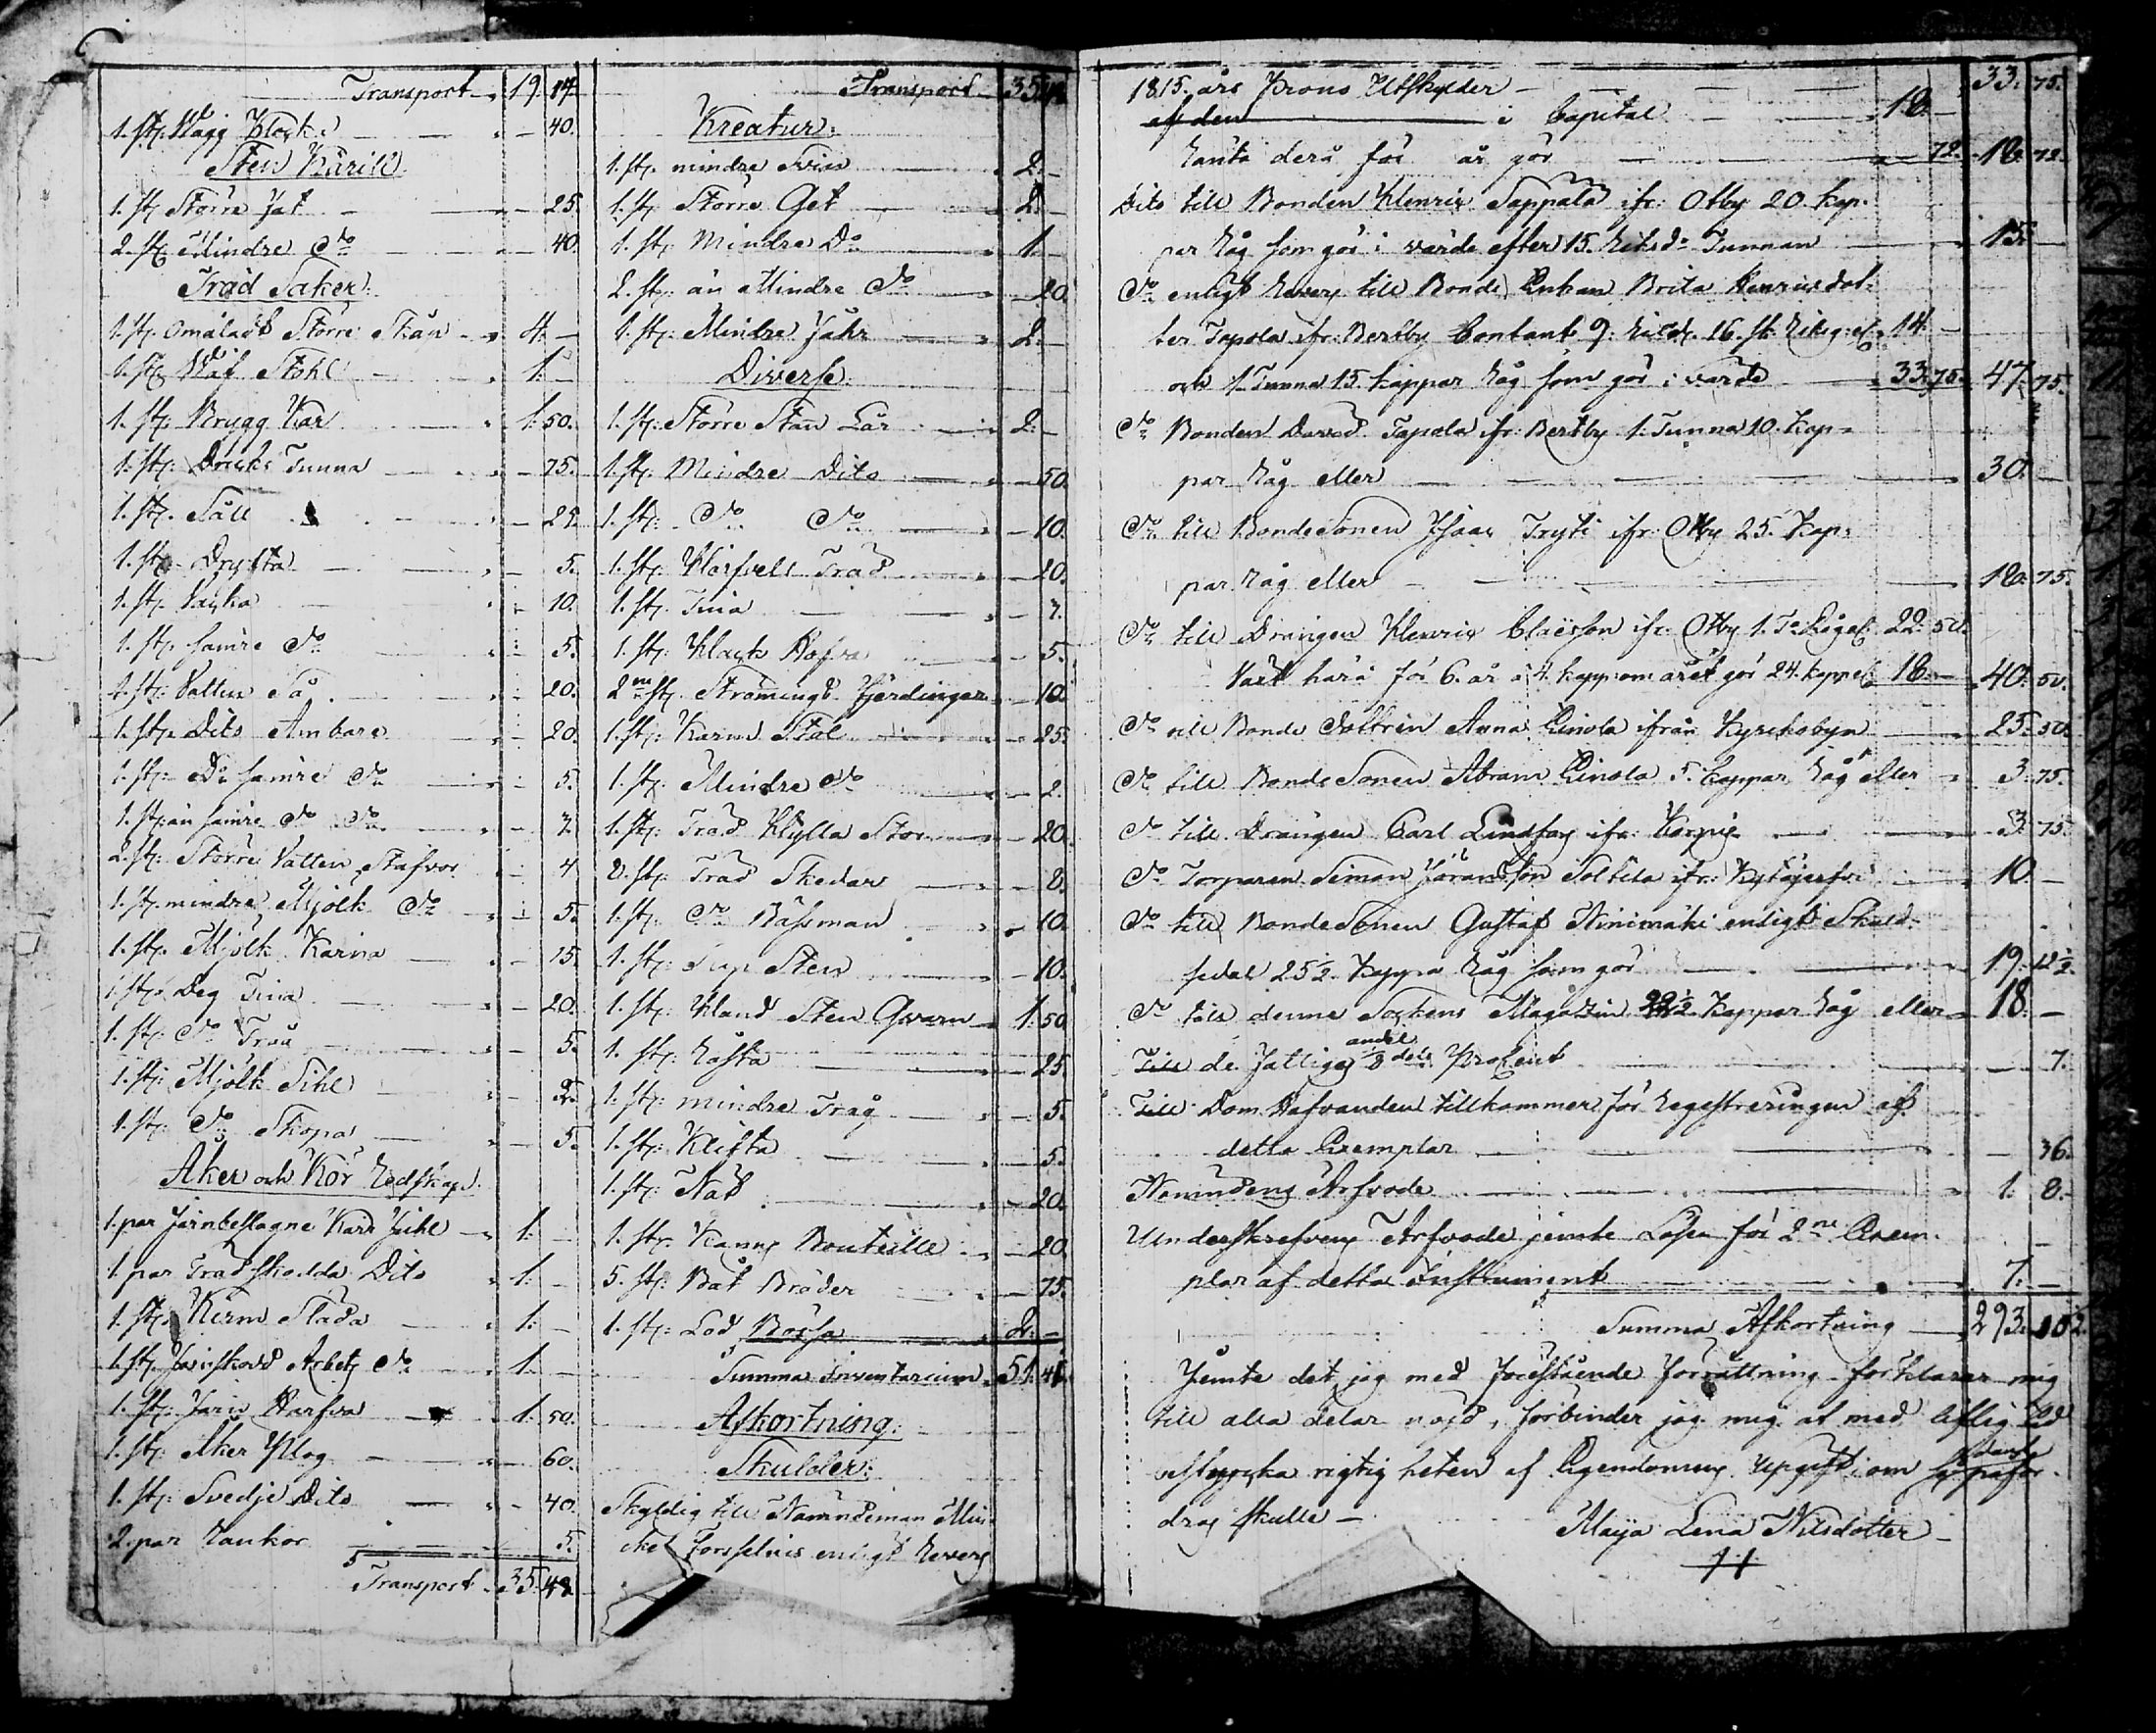 Transport 19. 14.
1. st. Vägg Klocka 40.
Sten Käril
1. st. Större Fat 25.
2. st. Mindre Do 40.
Träd Saker:
1. st. Omåladt Större Skåp 4. —
1. st. Väf Stohl 1. —
1. st. Brygg Kar 1. 50.
1. st. Dricks Tunna 75.
1. st. Såll 25.
1. st. Dryfta 5.
1. st. 10.
1. st. sämre Do 5.
1. st. Vatten Så 20.
1. st. Dito Ambare 20.
1. st. Do sämre Do 5.
1. st. än sämre Do Do 7.
2. st. Större Vatten Stäfvor 4
1. st. mindre Mjölk Do 5.
1. st. Mjölk Kärna 15.
1. st. Deg Tina 20.
1. st. Do Tråu 5.
1. st. Mjölk Sihl 2.
1. st. Do Skopa 5.
Åker och Kör Redskap.
1. par Järnbeslagne Kärr Hjihl 1. —
1. par Trädskodda Dito 1. —
1. st. Kärm Släda 1. —
1. st. Järnskodd Arbets Do 1. —
1. st. Järn Harfva 1. 50.
1. st. Åker Plog 60.
1. st. Svedje Dito 40.
2. par Rankor 5.
Transport 35. 48.
Transport 35. 48
Kreatur:
1. st. mindre Svin 2. —
1. st. Större Get 2. —
1. st. Mindre Do 1. —
2. st. än Mindre Do 20.
1. st. Mindre Fåhr 2. —
Diverse:
1. st. Större Stån Lår 2. —
1. st. Mindre Dito 50.
1. st. Do Do 10.
1. st. Härfvel Träd 20.
1. st. Tina 7.
1. st. Hack Hofva 5.
2ne st. Strömings Fjerdingar 10
1. st. Karm Stol 25.
1. st. Mindre Do 2.
1. st. Träd Hylla Stor 20.
8. st. Träd Skedar 8.
1. st. Do Bässman 10.
1. st. Slip Sten 10.
1. st. Hand Sten Qvarn 1. 50
1. st. 25
1. st. mindre Tråg 5.
1. st. Klifta 5.
1. st. Nät 20.
1. st. Kanns Bouteille 20
5. st. Båt Bräder 75.
1. st. Lod Börsa 2. —
Summa Inventarium 51. 48.
Afkortning:
Skulder:
Skyldig till Nämndeman Mic-
kel Forsselius enligt Revers
33. 75.
1815. års Krono Utskylder
af den i Capital 18. —
Ränta derå för år gör 72. 18. 72.
Dito till Bonden Henrix Sappala ifr. Otby 20. Kap-
par Råg som gör i värde efter 15. Riksdr Tunnan 15. —
Do enligt Revers till Bonde Enkan Brita Henricsdot-
ter Tapola ifr. Bertby Contant 9. Riksdr. 16. sk. Riksg. 14. —
och 1. Tunna 15. Kappar Råg som gör i värde 33. 75. 47. 75.
Do Bonden David Tapola ifr. Bertby 1. Tunna 10. Kap-
par Råg eller 30. —
Do till Bonde Sonen Isaac Tryti ifr. Otby 25. Kap-
par Råg eller 18. 75.
Do till Drängen Henrix Claësson ifr. Otby 1. Ta Råg 22. 50.
Växt härå för 6. år à 4. kapp. om året gör 24. kappe 18. — 40. 50.
Do till Bonde Dottren Anna Einola ifrån Kyrckobyn 25. 50.
Do till Bonde Sonen Abram Einola 5. Cappar Råg eller 3. 75.
Do till Drängen Carl Lindfors ifr. 3. 75.
Do Torparen Simon Göransson ifr. 10. —
Do till Bonde Sonen Gustaf Ninimäki enligt Skuld-
sedel 25½. Kappa Råg som gör 19. 12½.
Do till denne Sockens Magazzin Kappar Råg eller 18. —
Till de Fattiga andel ⅛ dels Procent 7.
Till Dom Hafvanden tillkommer för Registreringen af
detta Exemplar 36.
Nämndens Arfvode 1. 8.
Underskrefvens Arfvode jemte Lösen för 2ne Exem-
plar af detta Instrument 7. —
Summa Afkortning 293.
Jemte det jag med förestående förrättning förklarar mig
till alla delar nöjd, förbinder jag mig at med liflig Ed
bestyrcka rigtig heten af Egendomens Upgift; om sådant påfor-
dras skulle —
Maija Lena Nilsdotter